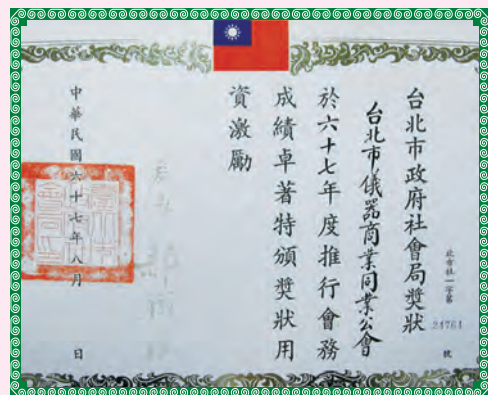 台北市政府社會局獎狀
北市社一字第24761號
台北市儀器商業同業公會
於六十七年度推行會務
成績卓著特頒獎狀用
資激勵
中華民國六十七年八月 日